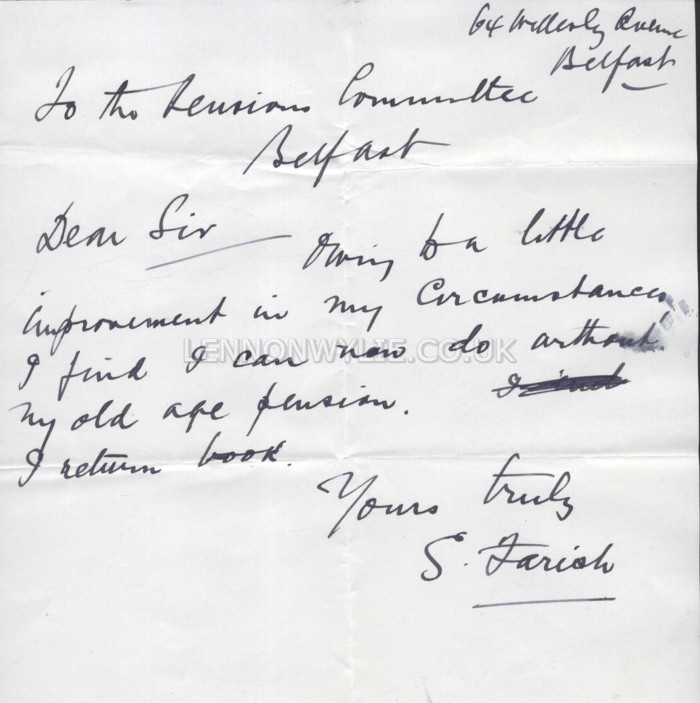 64 Wellesley Avenue
Belfast
To the Pensions Committee
Belfast
Dear Sir
Owing to a little
improvement in my Circumstances
I find I can now do without
LENNONWYLIE.CO.UK
my old age pension.
I return book.
Yours truly
E. Farish